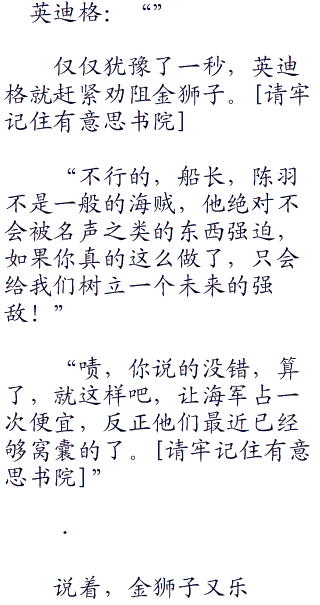 英迪格： “”
仅仅犹豫了一秒，英迪
格就赶紧劝阻金狮子。[请牢
记住有意思书院]
“不行的，船长，陈羽
不是一般的海贼，他绝对不
会被名声之类的东西强迫，
如果你真的这么做了，只会
给我们树立一个未来的强
敌！”
“啧，你说的没错，算
了，就这样吧，让海军占一
次便宜，反正他们最近已经
够窝囊的了。[请牢记住有意
思书院]”
.
说着，金狮子又乐